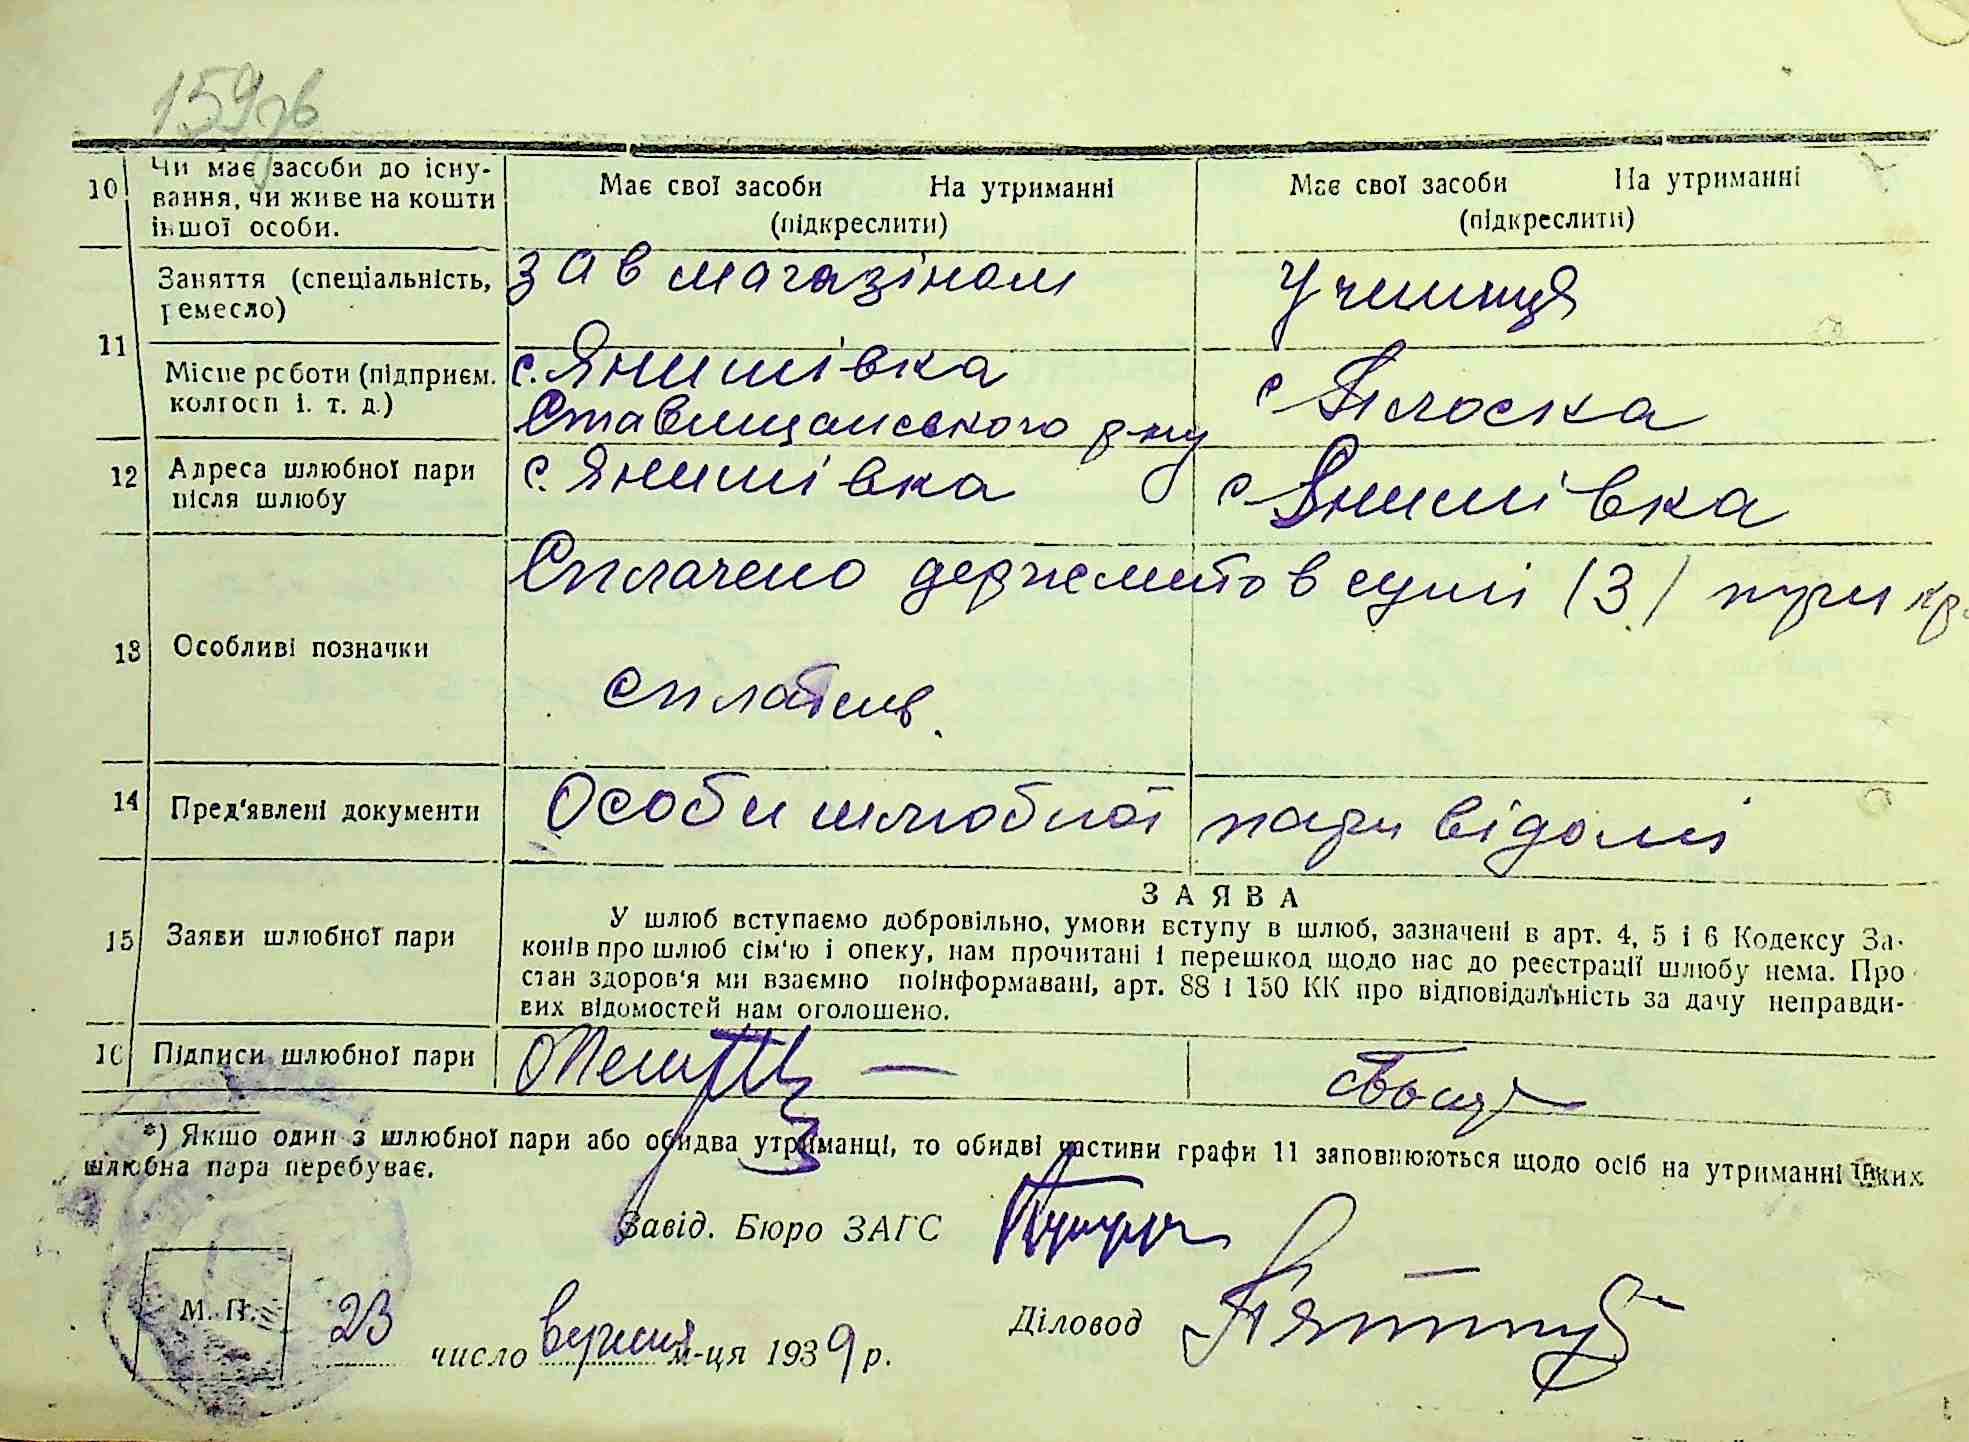 159зв
10 Чи має засоби до існу-
вання, чи живе на кошти
іншої особи.
Має свої засоби На утриманні
(підкреслити)
Має свої засоби На утриманні
(підкреслити)
11
Заняття (спеціальність,
ремесло)
зав магазіном
Учениця
Місце роботи (підприєм.
колгосп і. т. д.)
с. Янишівка
Ставищанського р-ну
с Плоска
12 Адреса шлюбної пари
після шлюбу
с. Янишівка
с Янишівка
13 Особливі позначки
Сплачено держмито в сумі (3) три кр.
сплатив.
14 Пред'явлені документи
Особи шлюбної пари відомі
15 Заяви шлюбної пари
ЗАЯВА
У шлюб вступаємо добровільно, умови вступу в шлюб, зазначені в арт. 4, 5 і 6 Кодексу За-
конів про шлюб сім'ю і опеку, нам прочитані і перешкод щодо нас до реєстрації шлюбу нема. Про
стан здоров'я ми взаємно поінформавані, арт. 88 і 150 КК про відповідальність за дачу неправди-
вих відомостей нам оголошено.
16 Підписи шлюбної пари
*) Якшо один з шлюбної пари або обидва утриманці, то обидві частини графи 11 заповнюються щодо осіб на утриманні яких
шлюбна пара перебуває.
Завід. Бюро ЗАГС
М. П.
23 число вересня м-ця 1939 р.
Діловод